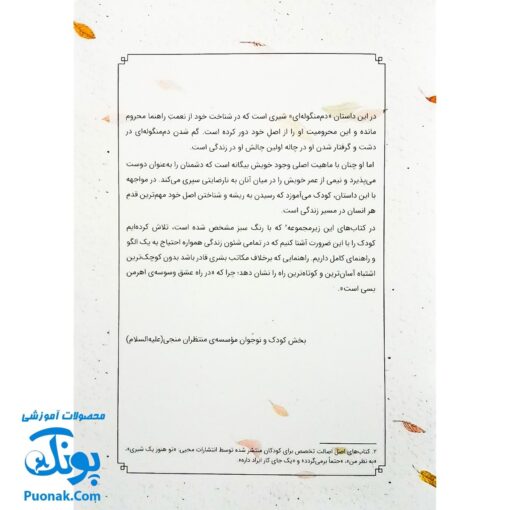 در این داستان «دم‌منگوله‌ای» شیری است که در شناخت خود از نعمتِ راهنما محروم
مانده و این محرومیت او را از اصل خود دور کرده است. گم شدن دم‌منگوله‌ای در
دشت و گرفتار شدن او در چاله اولین چالش او در زندگی است.
اما او چنان با ماهیت اصلی وجود خویش بیگانه است که دشمنان را به‌عنوان دوست
می‌پذیرد و نیمی از عمر خویش را در میان آنان به نارضایتی سپری می‌کند. در مواجهه
با این داستان، کودک می‌آموزد که رسیدن به ریشه و شناختن اصل خود مهم‌ترین قدمِ
هر انسان در مسیر زندگی است.
در کتاب‌های این زیرمجموعه² که با رنگ سبز مشخص شده است، تلاش کرده‌ایم
کودک را با این ضرورت آشنا کنیم که در تمامی شئون زندگی همواره احتیاج به یک الگو
و راهنمای کامل داریم. راهنمایی که برخلاف مکاتب بشری قادر باشد بدون کوچک‌ترین
اشتباه آسان‌ترین و کوتاه‌ترین راه را نشان دهد؛ چرا که «در راه عشق وسوسه‌ی اهرمن
بسی است».
بخش کودک و نوجوان مؤسسه‌ی منتظران منجی(علیه‌السلام)
۲. کتاب‌های اصل اصالت تخصص برای کودکان منتشر شده توسط انتشارات محیی: «تو هنوز یک شیری»،
«به نظر من»، «حتماً برمی‌گردد» و «یک جای کار ایراد داره»
محصولات آموزشی
پونک
Puonak.Com